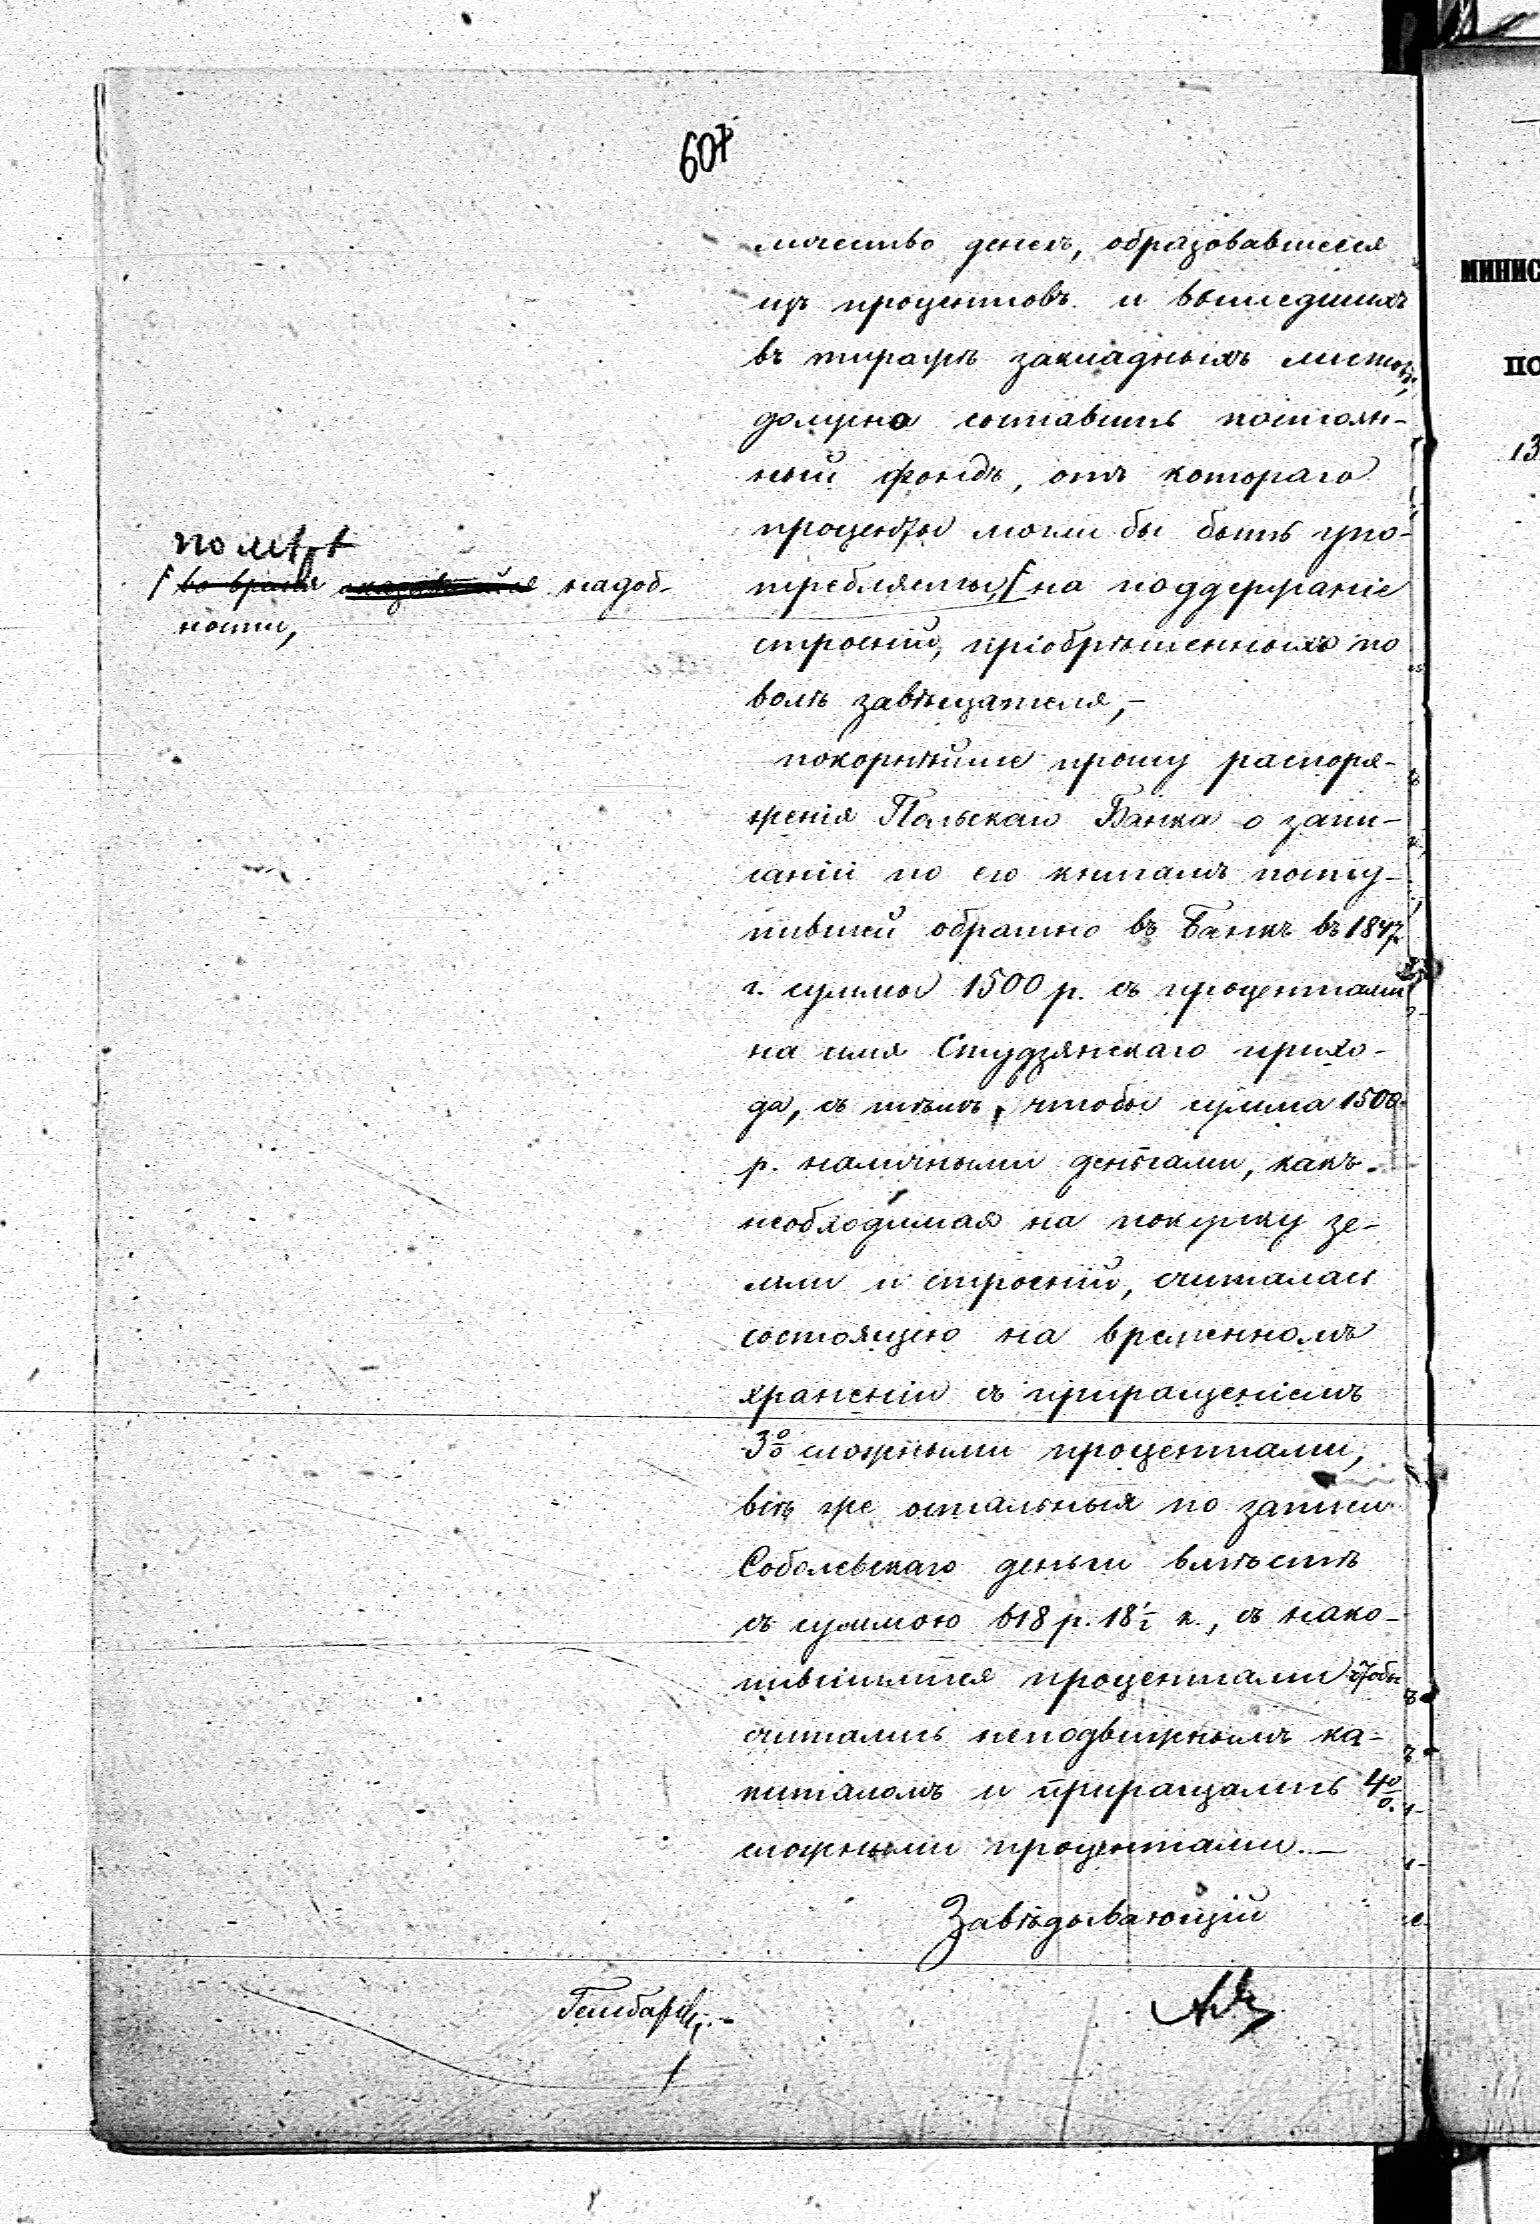 607
личество денегъ, образовавшееся
изъ процентовъ и вышедшихъ
въ тиражъ закладныхъ листовъ,
должно составить постоян-
ный фондъ, отъ котораго
проценты могли бы быть упо-
требляемы, на поддержаніе
строеній, пріобрѣтенныхъ по
волѣ завѣщателя,-
покорнѣйше прошу распоря-
женія Польскаго Банка о запи-
саніи по его книгамъ посту-
пившей обратно въ Банкъ въ 1847
г. суммы 1500 р. съ процентами
на имя Студзянскаго прихо-
да, съ тѣмъ, чтобы сумма 1500
р. наличными деньгами, какъ
необходимая на покупку зе-
мли и строеній, считалась
состоящею на временномъ
храненіи съ приращеніемъ
3% сложными процентами,
всѣ же остальныя по записи
Соболевскаго деньги вмѣстѣ
съ суммою 618 р. 18½ к., съ нако-
пившимися процентами чтобы
считались неподвижнымъ ка-
питаломъ и приращались 4%
сложными процентами.-
Завѣдывающій
по мѣрѣ
во время надоб-
ности,
МИНИС
ПО
13